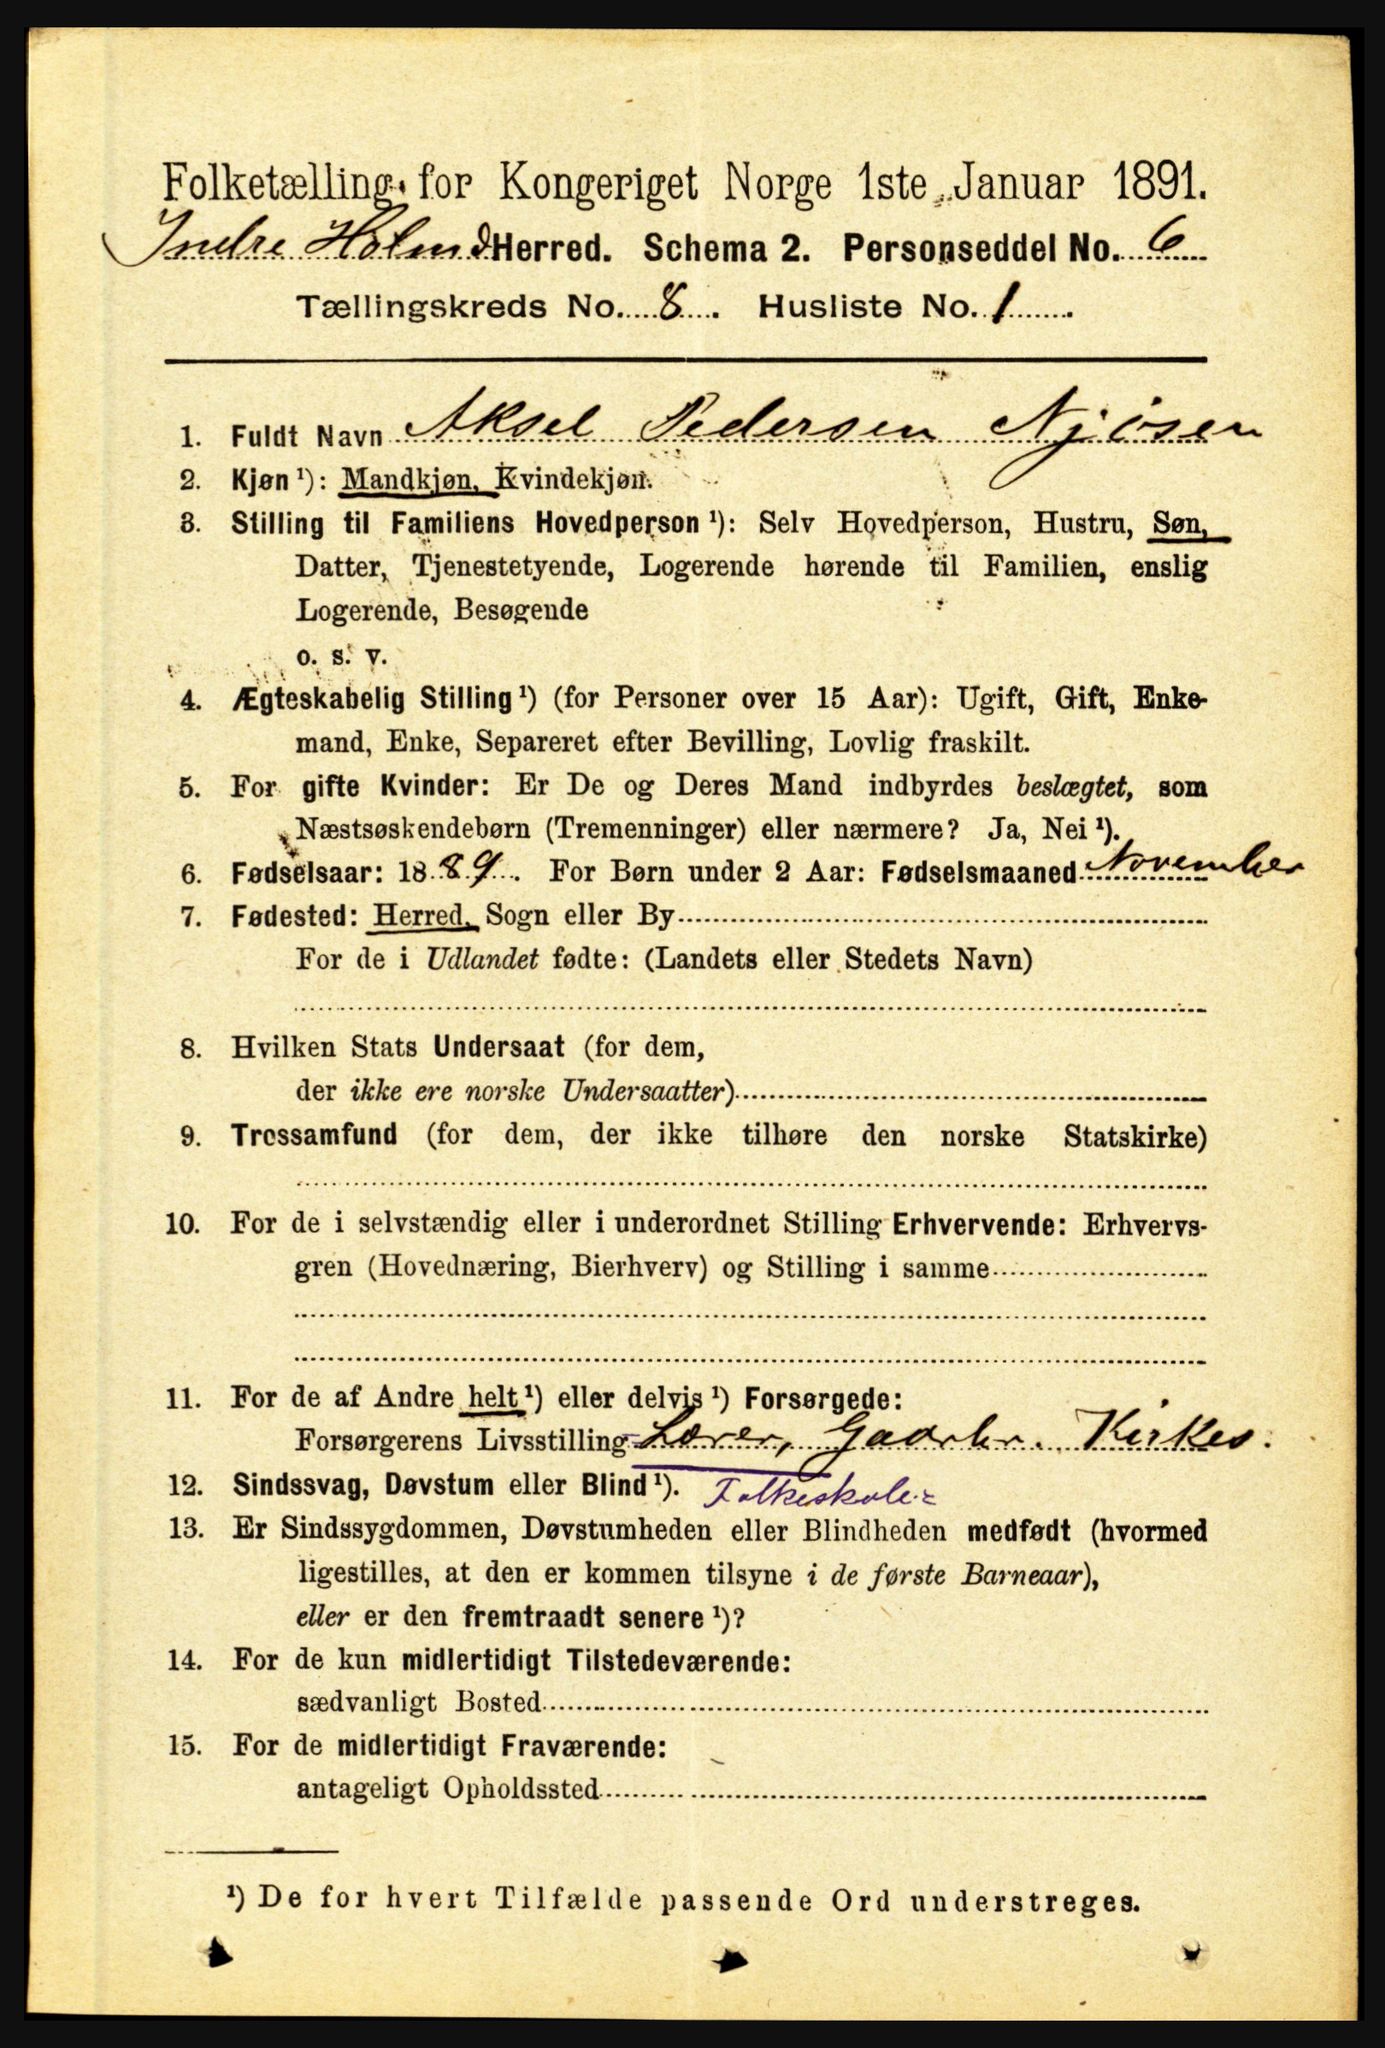 Folketælling for Kongeriget Norge 1ste Januar 1891.
Indre Holmd Herred. Schema 2. Personseddel No. 6
Tællingskreds No. 8. Husliste No. 1
1. Fuldt Navn Aksel Pedersen Njøsen
2. Kjøn ¹): Mandkjøn, Kvindekjøn.
3. Stilling til Familiens Hovedperson ¹): Selv Hovedperson, Hustru, Søn,
Datter, Tjenestetyende, Logerende hørende til Familien, enslig
Logerende, Besøgende
o. s. v.
4. Ægteskabelig Stilling ¹) (for Personer over 15 Aar): Ugift, Gift, Enke-
mand, Enke, Separeret efter Bevilling, Lovlig fraskilt.
5. For gifte Kvinder: Er De og Deres Mand indbyrdes beslægtet, som
Næstsøskendebørn (Tremenninger) eller nærmere? Ja, Nei ¹).
6. Fødselsaar: 1889. For Børn under 2 Aar: Fødselsmaaned November
7. Fødested: Herred, Sogn eller By
For de i Udlandet fødte: (Landets eller Stedets Navn)
8. Hvilken Stats Undersaat (for dem,
der ikke ere norske Undersaatter)
9. Trossamfund (for dem, der ikke tilhøre den norske Statskirke)
10. For de i selvstændig eller i underordnet Stilling Erhvervende: Erhvervs-
gren (Hovednæring, Bierhverv) og Stilling i samme
11. For de af Andre helt ¹) eller delvis ¹) Forsørgede:
Forsørgerens Livsstilling Lærer, Gaardbr. Kirkes.
12. Sindssvag, Døvstum eller Blind ¹). Folkeskole
13. Er Sindssygdommen, Døvstumheden eller Blindheden medfødt (hvormed
ligestilles, at den er kommen tilsyne i de første Barneaar),
eller er den fremtraadt senere ¹)?
14. For de kun midlertidigt Tilstedeværende:
sædvanligt Bosted
15. For de midlertidigt Fraværende:
antageligt Opholdssted
¹) De for hvert Tilfælde passende Ord understreges.